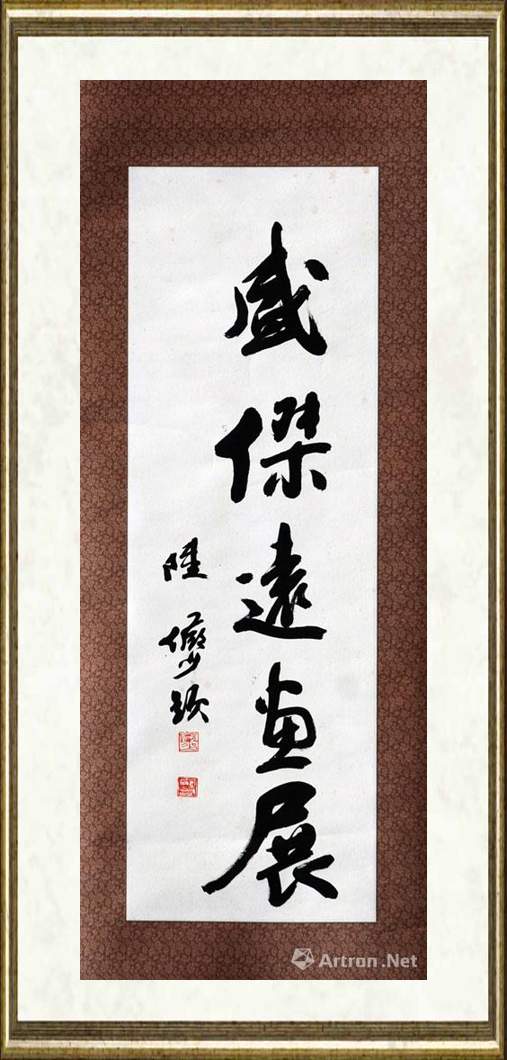 盛傑遠畫展
陸儼少題
Artron.Net